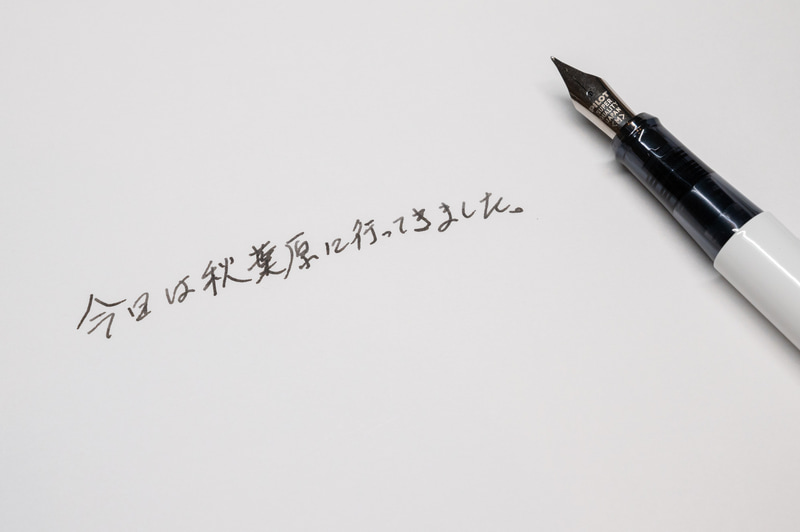 今日は秋葉原に行ってきました。
PILOT
SUPER
QUALITY
JAPAN
<M>